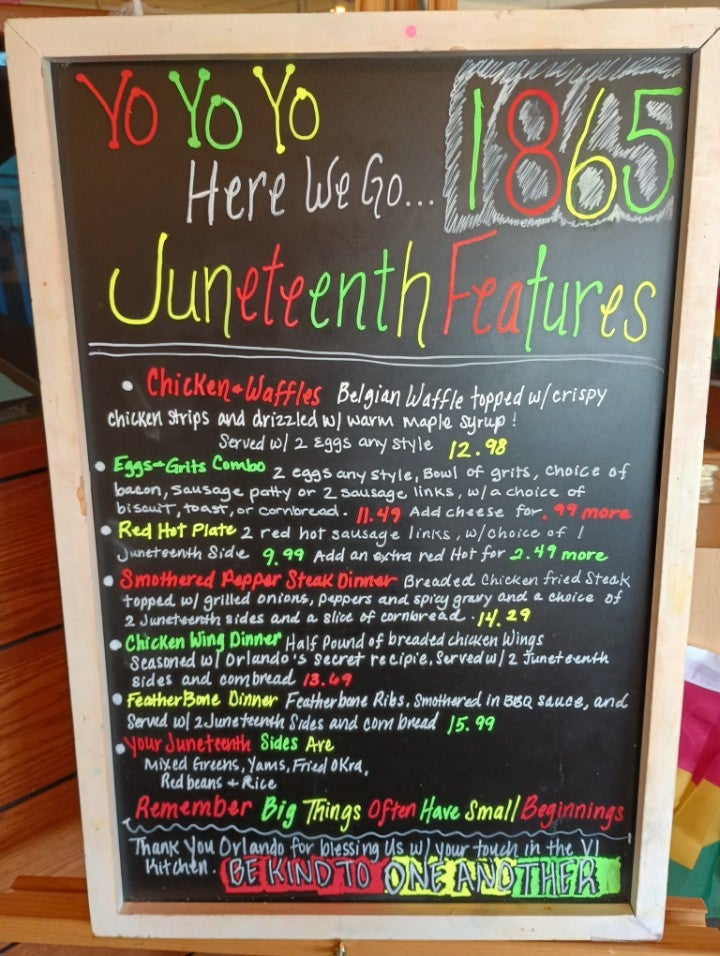 Yo Yo Yo
1865
Here We Go...
Juneteenth Features
• Chicken + Waffles Belgian Waffle topped w/ crispy
chicken strips and drizzled w/ warm maple syrup!
Served w/ 2 Eggs any style 12.98
• Eggs + Grits Combo 2 eggs any style, Bowl of grits, choice of
bacon, sausage patty or 2 sausage links, w/ a choice of
biscuit, toast, or cornbread. 11.49 Add cheese for .99 more
• Red Hot Plate 2 red hot sausage links, w/ choice of 1
Juneteenth Side 9.99 Add an extra red Hot for 2.49 more
• Smothered Pepper Steak Dinner Breaded Chicken fried Steak
topped w/ grilled onions, peppers and spicy gravy and a choice of
2 Juneteenth sides and a slice of cornbread. 14.29
• Chicken Wing Dinner Half Pound of breaded chicken Wings
Seasoned w/ Orlando's secret recipie. Served w/ 2 Juneteenth
sides and cornbread 13.69
• FeatherBone Dinner Featherbone Ribs, Smothered in BBQ sauce, and
Served w/ 2 Juneteenth Sides and corn bread 15.99
• Your Juneteenth Sides Are
Mixed Greens, Yams, Fried Okra,
Red beans + Rice
Remember Big Things Often Have Small Beginnings
Thank You Orlando for blessing Us w/ your touch in the VI
Kitchen. BE KIND TO ONE ANOTHER